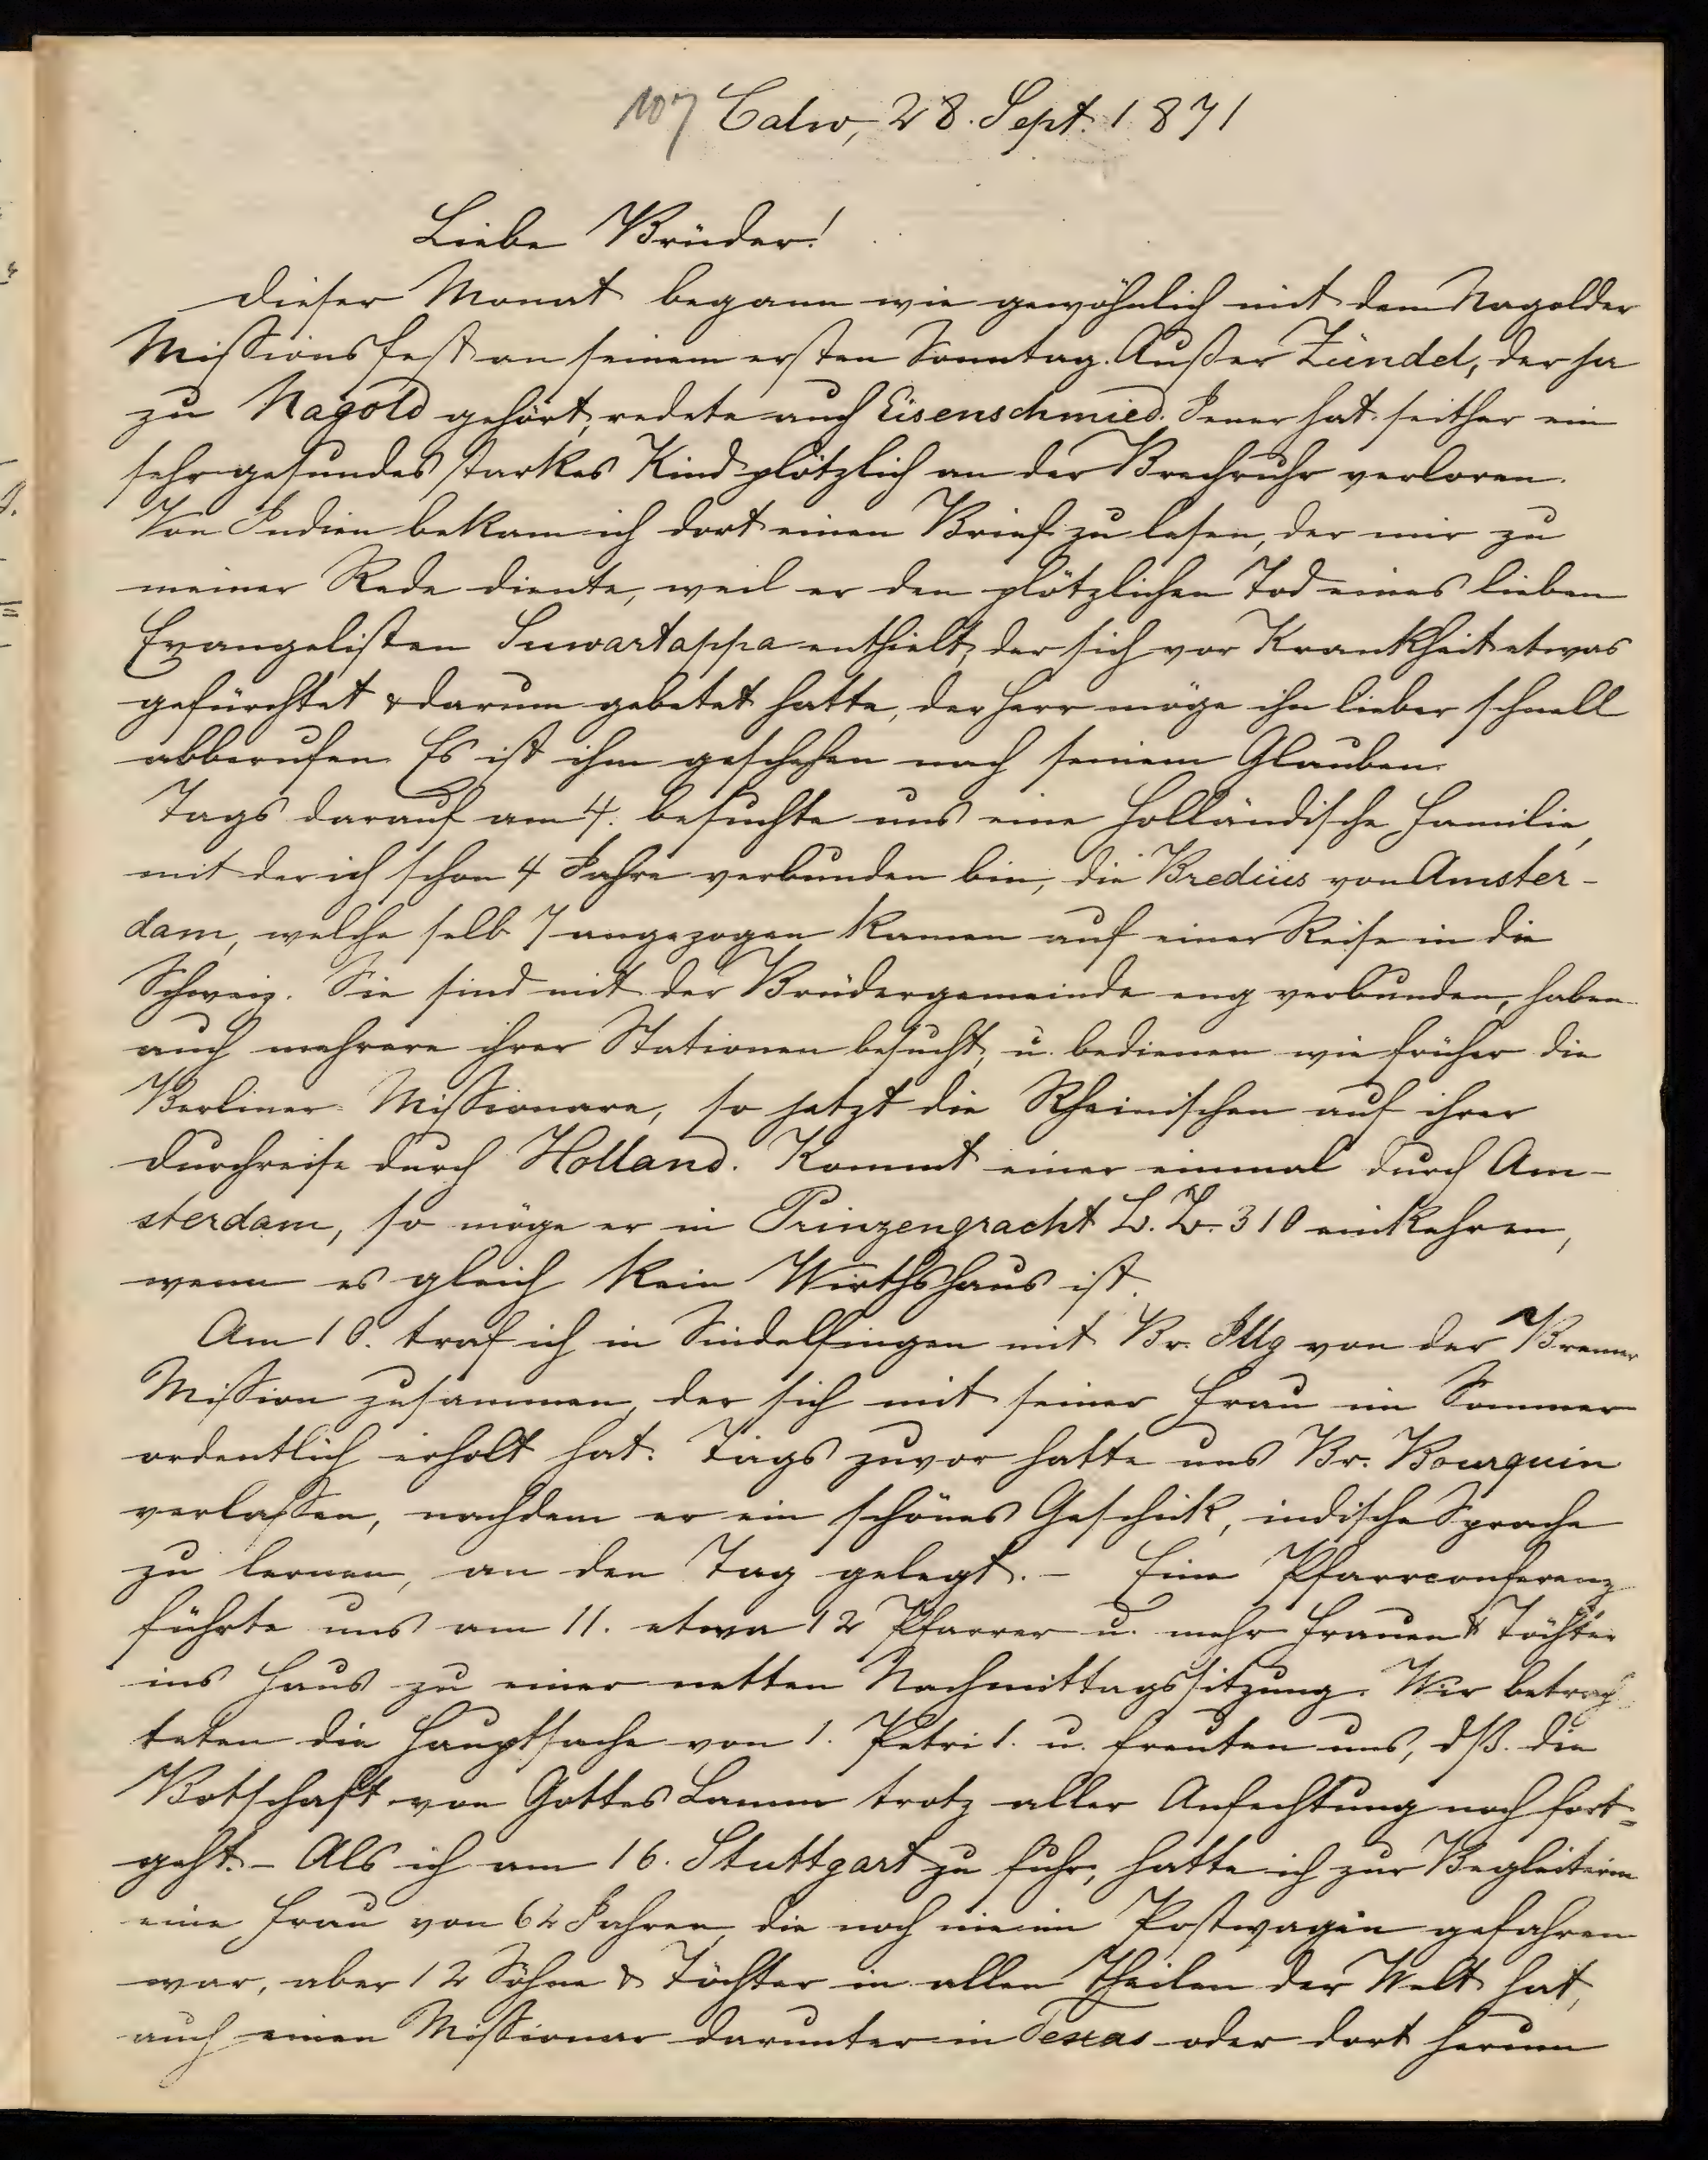 107 Calw, 28. Sept. 1871
Liebe Brüder!
Dieser Monat begann wie gewöhnlich mit dem Nagolder
Missionsfest an seinem ersten Sonntag. Außer Zündel, der ja
zu Nagold gehört, redete auch Eisenschmied. Jener hat seither ein
sehr gesundes starkes Kind plötzlich an der Brechruhr verloren.
Von Indien bekam ich dort einen Brief zu lesen, der mir zu
meiner Rede diente, weil er den plötzlichen Tod eines lieben
Evangelisten Suwartappa enthielt, der sich vor Krankheit etwas
gefürchtet & darum gebetet hatte, der Herr möge ihn lieber schnell
abberufen. Es ist ihm geschehen nach seinem Glauben.
Tags darauf am 4. besuchte uns eine holländische Familie,
mit der ich schon 4 Jahre verbunden bin, die Bredius von Amster-
dam, welche selb 7 angezogen kamen auf einer Reise in die
Schweiz. Sie sind mit der Brüdergemeinde eng verbunden, haben
auch mehrere ihrer Stationen besucht, u. bedienen wie früher die
Berliner Missionare, so jetzt die Rheinischen auf ihrer
Durchreise durch Holland. Kommt einer einmal durch Am-
sterdam, so möge er in Prinzengracht L. L. 310 einkehren,
wenn es gleich kein Wirthshaus ist.
Am 10. traf ich in Sindelfingen mit Br. Illg von der Bremer
Mission zusammen, der sich mit seiner Frau im Sommer
ordentlich erholt hat. Tags zuvor hatte uns Br. Bourquin
verlassen, nachdem er ein schönes Geschick, indische Sprache
zu lernen, an den Tag gelegt. - Eine Pfarrconferenz
führte uns am 11. etwa 12 Pfarrer u. mehr Frauen & Töchter
ins Haus zu einer netten Nachmittagssitzung. Wir betrach
teten die Hauptsache von 1. Petri 1. u. freuten uns, dß. die
Botschaft von Gottes Lamm trotz aller Anfechtung noch fort=
geht. - Als ich am 16. Stuttgart zu fuhr, hatte ich zur Begleiterin
eine Frau von 64 Jahren, die noch nie im Postwagen gefahren
war, aber 12 Söhne & Töchter in allen Theilen der Welt hat,
auch einen Missionar darunter in Texas oder dort herum